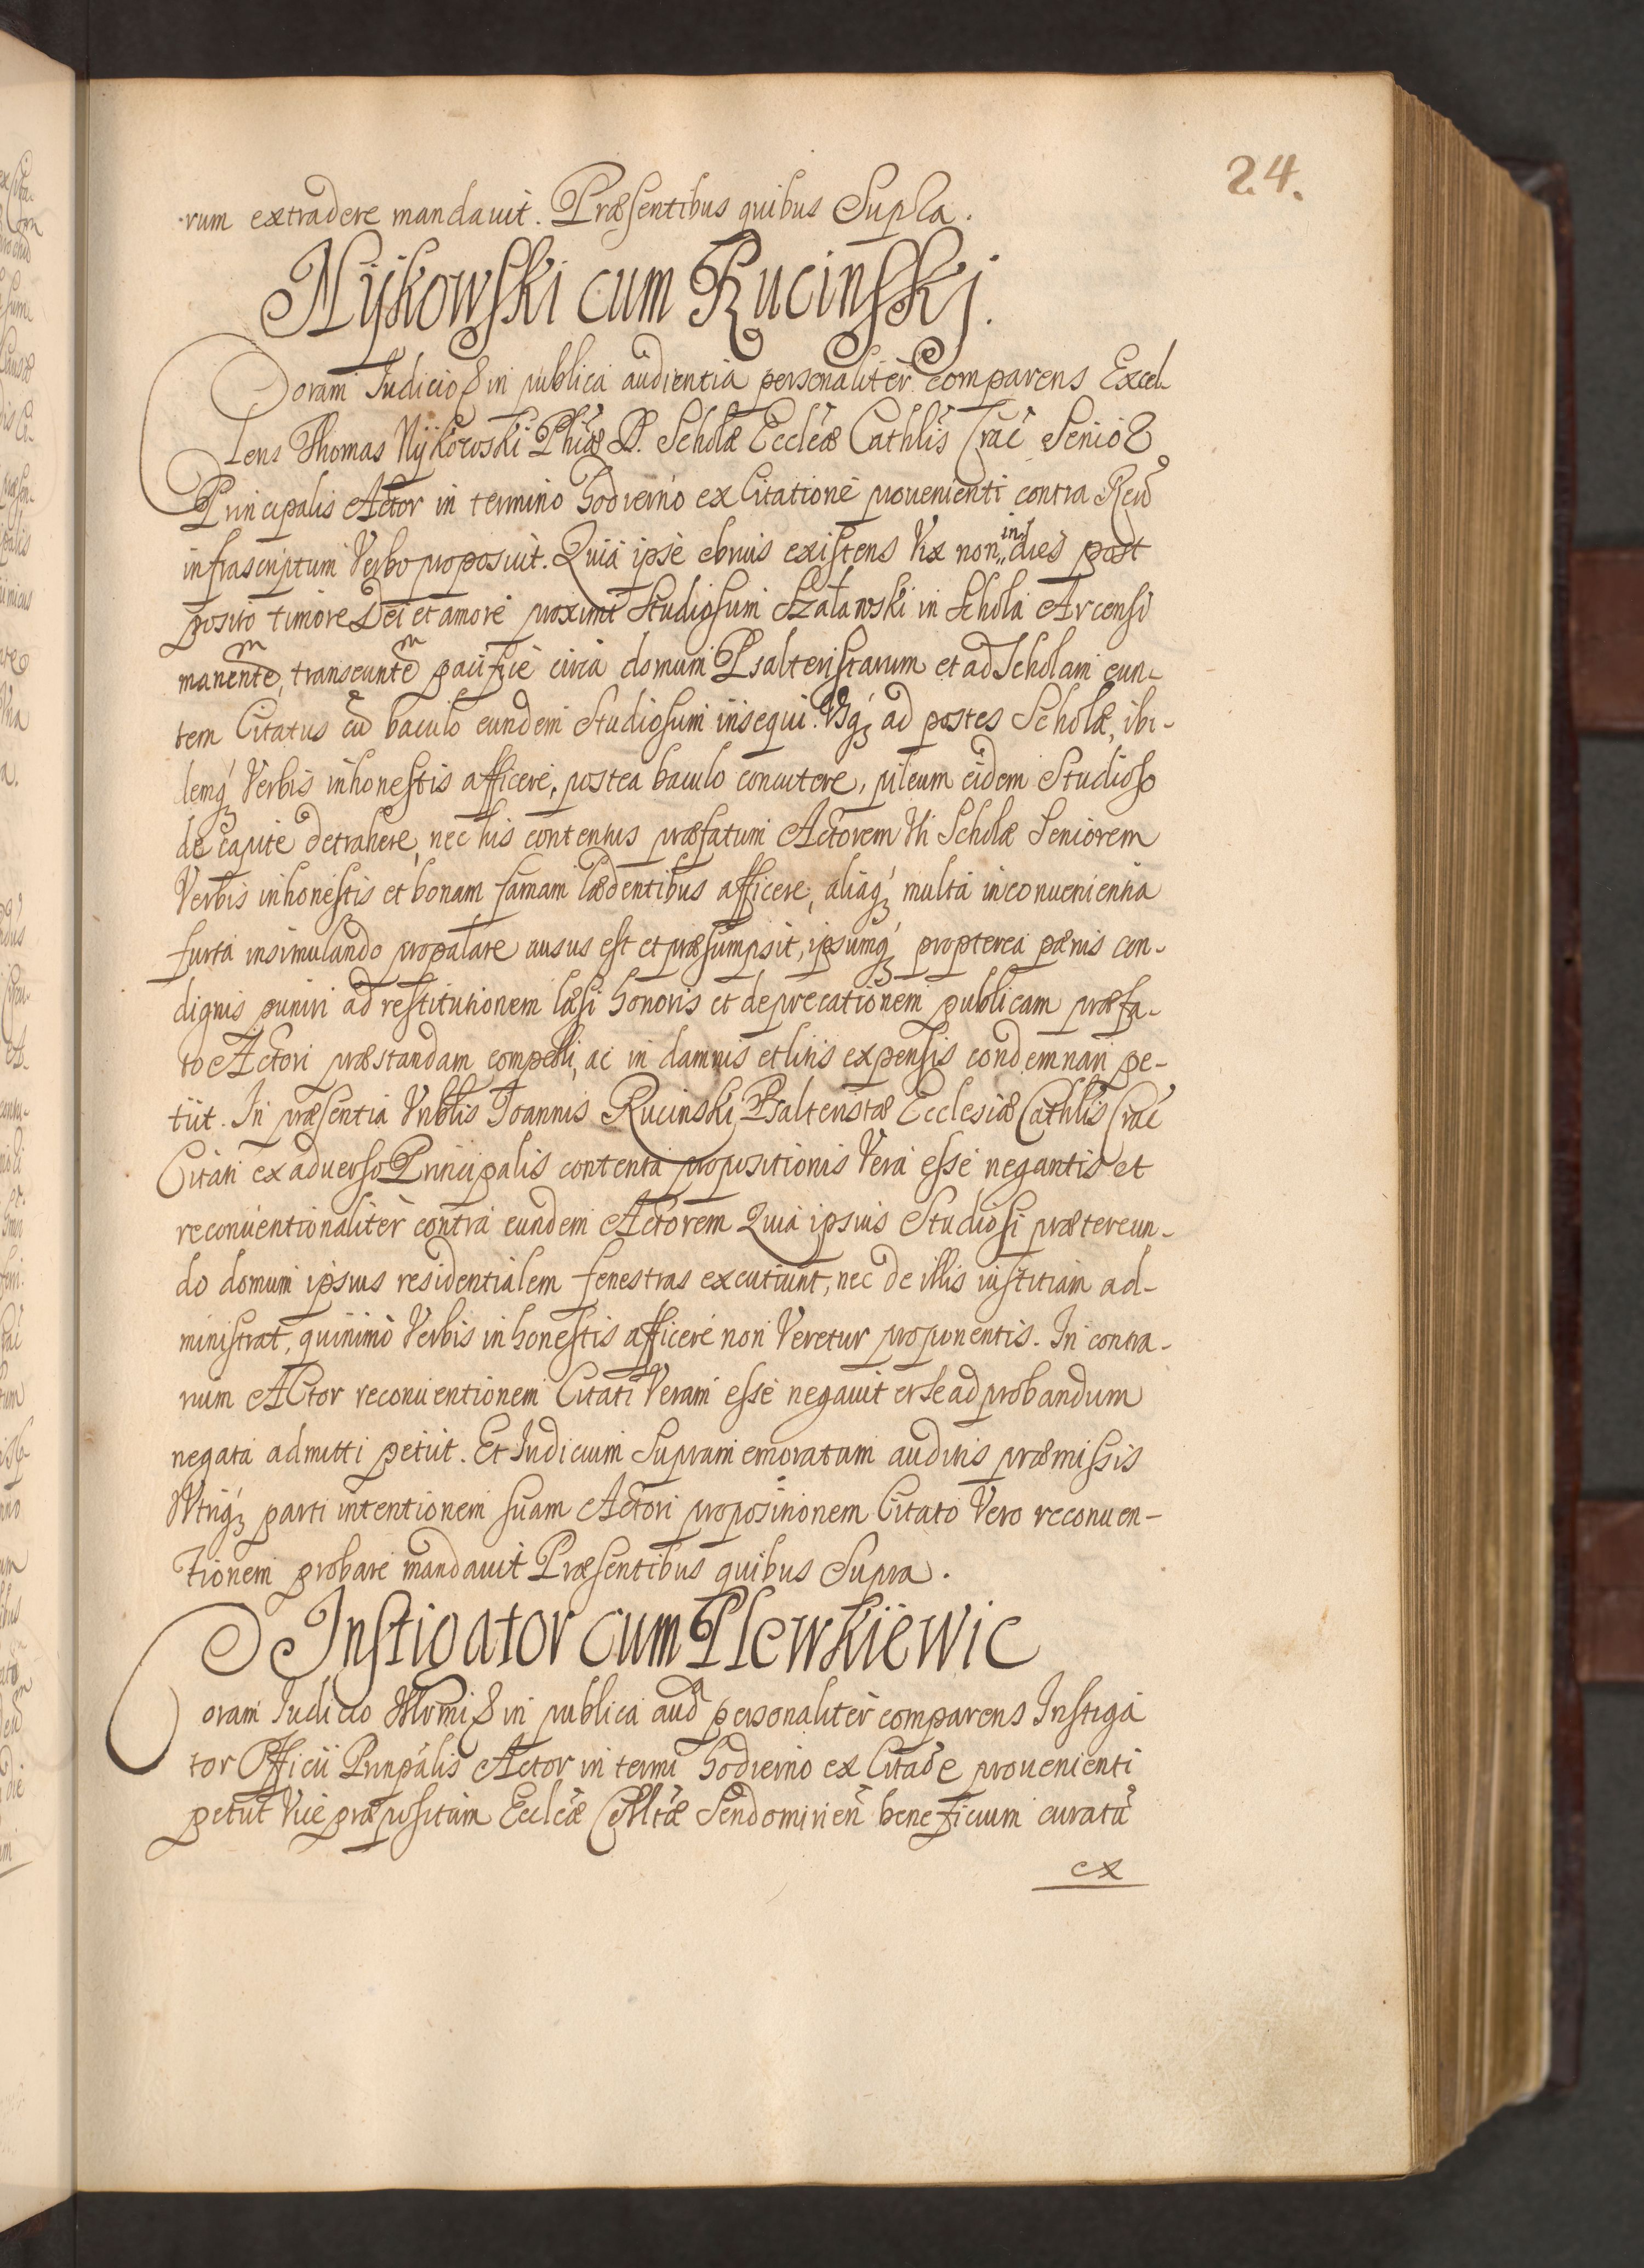 24.
rum extradere mandauit. Præsentibus quibus Supra.
Nÿkowski cum Rucinskj.
Coram Iudicio & in publica audientia personaliter comparens Excel-
lens Thomas Nÿkowski Phiæ D. Scholæ Eccleæ Cathlis Crac Senior
Principalis Actor in termino hodierno ex Citatione prouenienti contra Reũ
infrascriptum Verbo proposuit. Quia ipse ebrius existens Vix non in dies post
posito timore Dei et amore proximi Studiosum Szaławski in Schola Arcensi
manentem, transeuntem pacifice circa domum Psalteristarum et ad Scholam eun-
tem Citatus cũ baculo eundem Studiosum insequi. Vsq́ ad postes Scholæ, ibi-
demq́ Verbis inhonestis afficere, postea baculo concutere, pileum eidem Studioso
de capite detrahere, nec his contentus præfatum Actorem Vti Scholæ Seniorem
Verbis inhonestis et bonam famam lædentibus afficere, aliaq́ multa inconuenientia
furta insimulando propalare ausus est et præsumpsit, ipsumq́ propterea pænis con-
dignis puniri ad restitutionem læsi honoris et deprecationem publicam præfa-
to Actori præstandam compelli, ac in damnis et litis expensis condemnari pe-
tiit. In præsentia Vnblis Ioannis Rucinski Psalteristæ Ecclesiæ Cathlis Crac
Citati ex aduerso Principalis contenta propositionis Vera esse negantis et
reconuentionaliter contra eundem Actorem Quia ipsius Studiosi prætereun-
do domum ipsius residentialem fenestras excutiunt, nec de illis iustitiam ad-
ministrat, quinimo Verbis inhonestis afficere non Veretur proponentis. In contra-
rium Actor reconuentionem Citati Veram esse negauit et se ad probandum
negata admitti petiit. Et Iudicium Supramemoratum auditis præmissis
Vtriq́ parti intentionem suam Actori propositionem Citato Vero reconuen-
tionem probare mandauit Præsentibus quibus Supra.
Instigator cum Plewkiewic
Coram Iudicio & in publica aud personaliter comparens Instiga
tor Officii Prinpalis Actor in termi hodierno ex Citaõe prouenienti
petiit Vice præpositum Eccleæ Colltæ Sendomirieñ beneficium curatũ
ex